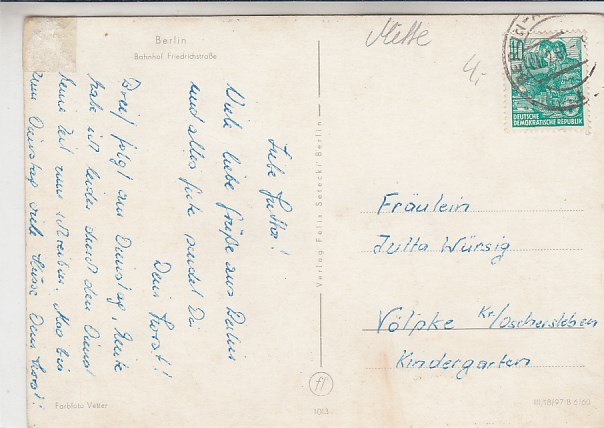 Berlin
Bahnhof Friedrichstraße
Mette
4,-
Liebe Jutta!
Viele liebe Grüße aus Berlin
und alles Gute sendet Dir
Dein Horst!
Brief folgt am Dienstag, heute
hatte ich leider durch den Dienst
keine Zeit zum schreiben. Also bis
zum Dienstag viele Küsse Dein Horst!
Verlag Felix Setecki Berlin
DEUTSCHE
DEMOKRATISCHE REPUBLIK
5
Fräulein
Jutta Würsig
Völpke Kr/Oschersleben
Kindergarten
Farbfoto Vetter
1013
III/18/97 B 6/60